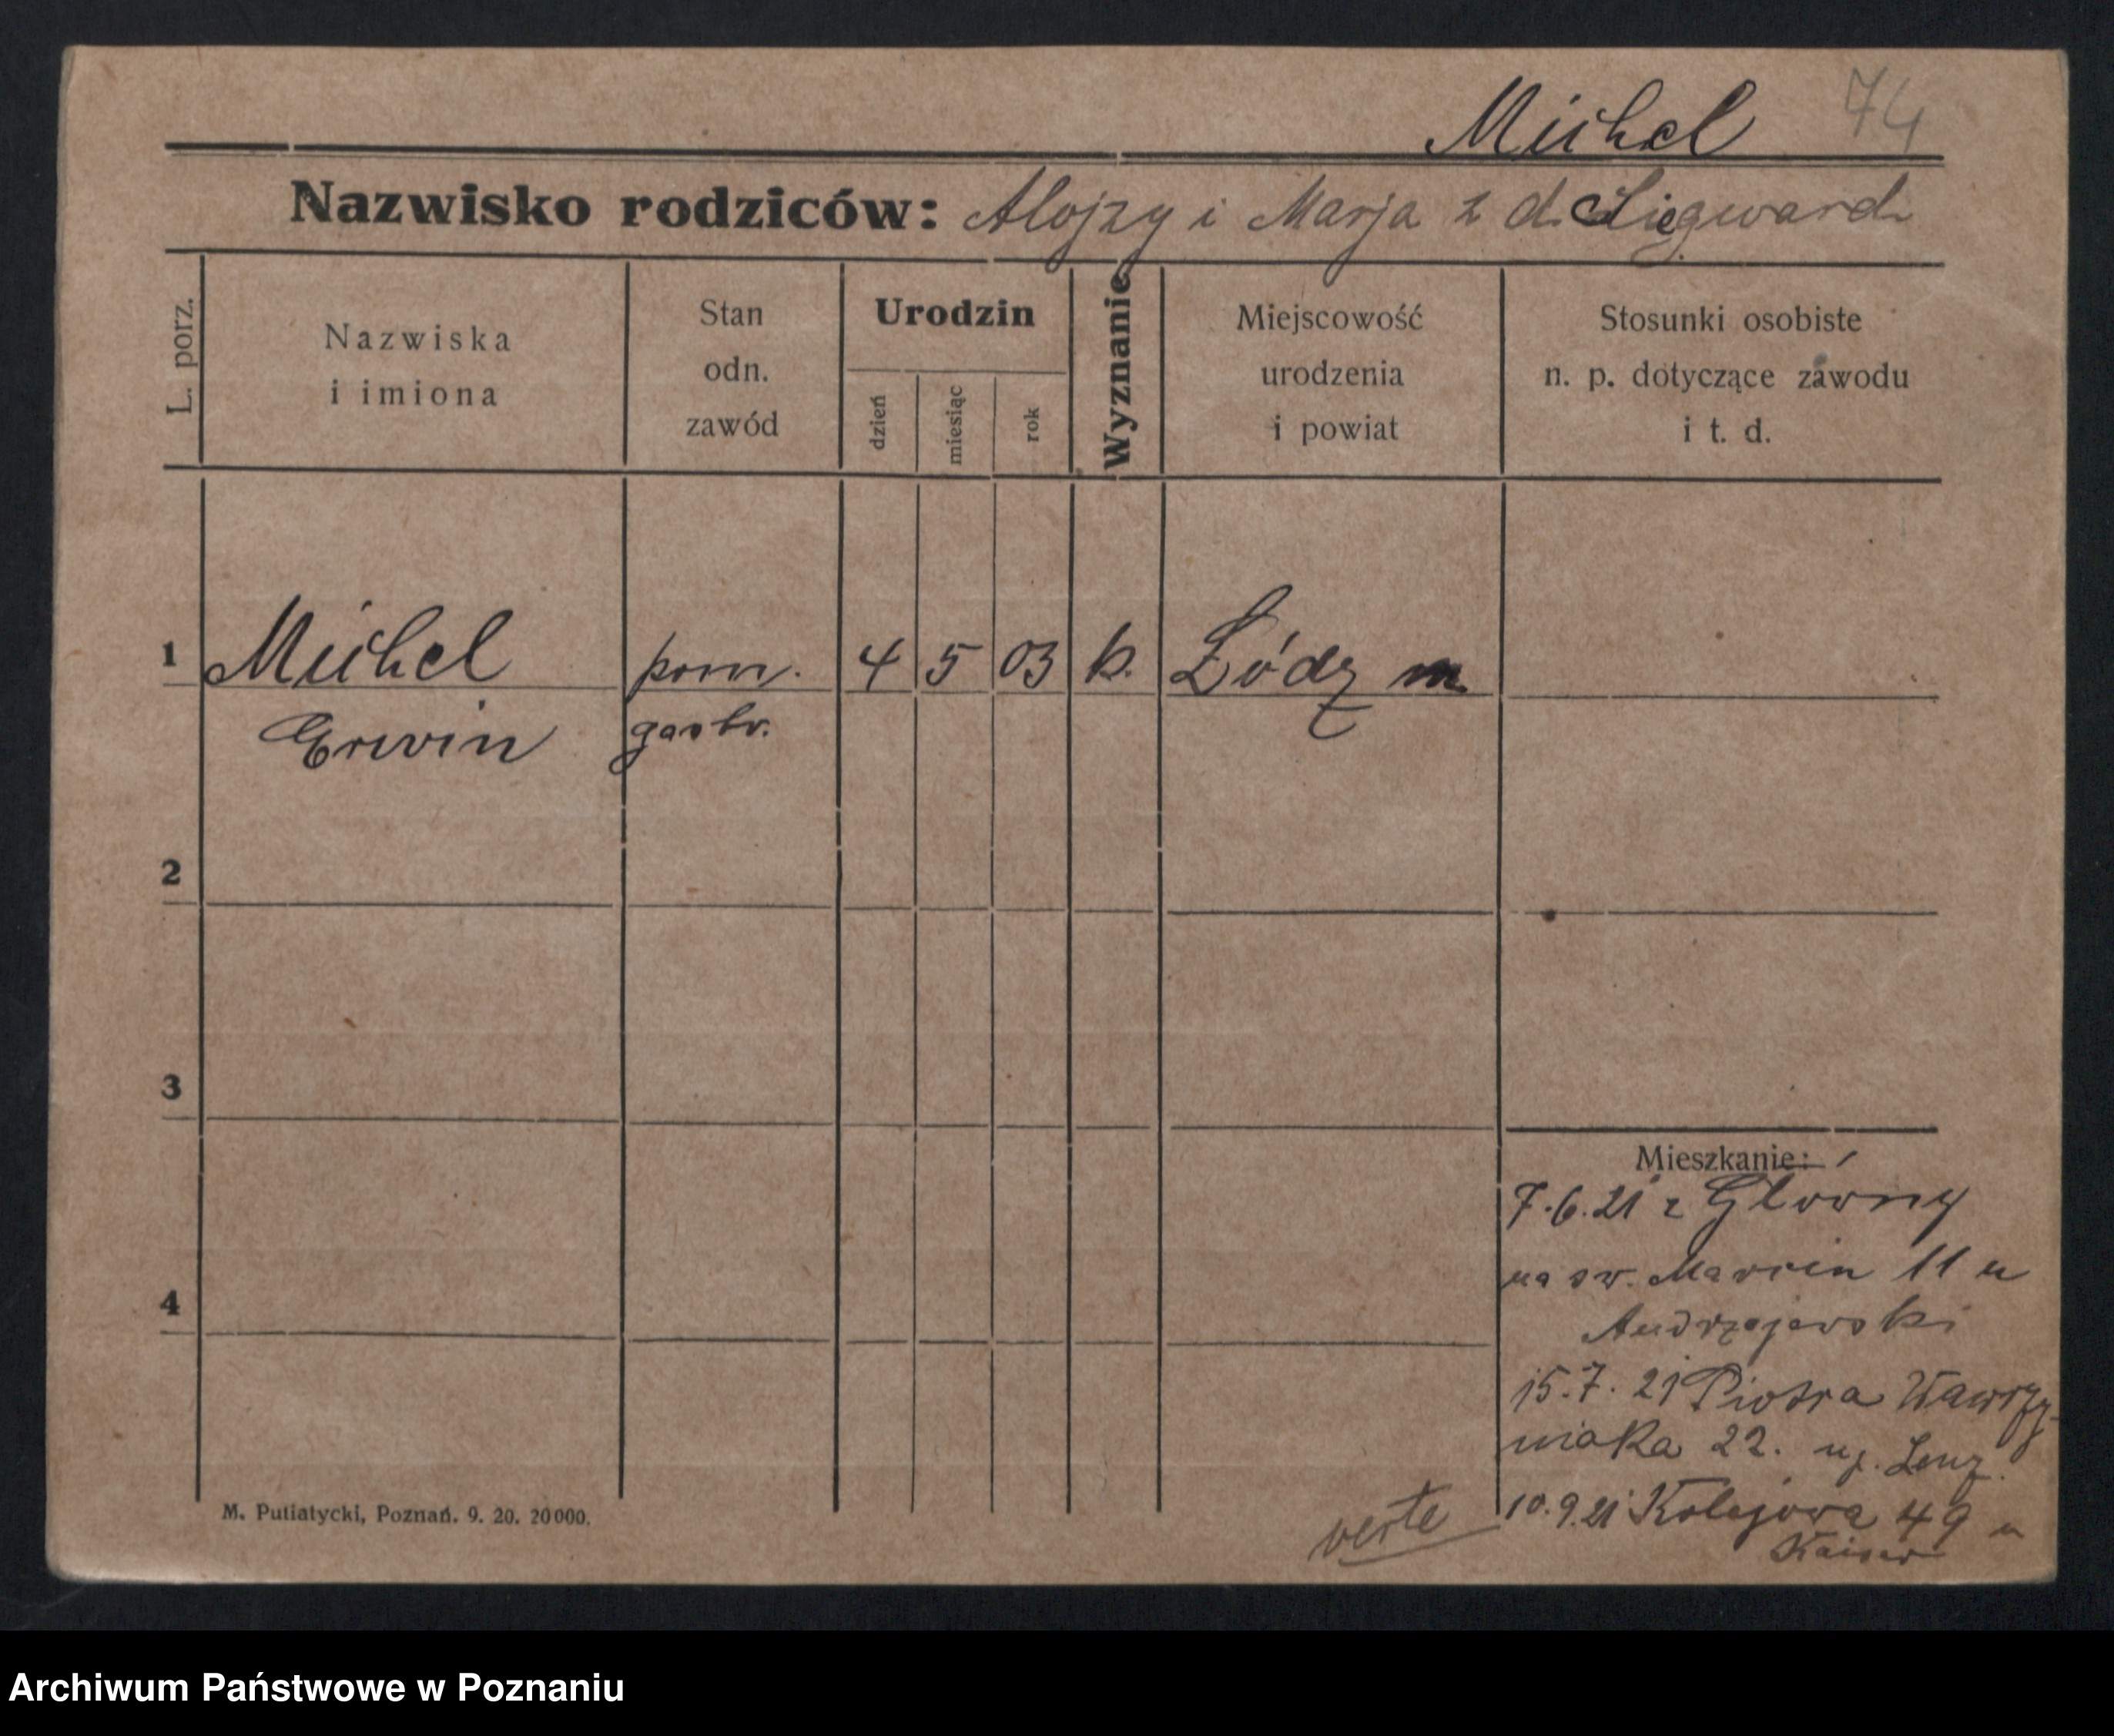 Michel 74
Nazwisko rodziców: Alojzy i Marja z d. Siegward
L. porz.
Nazwiska
i imiona
Stan
odn.
zawód
Urodzin
dzień
miesiąc
rok
Wyznanie
Miejscowość
urodzenia
i powiat
Stosunki osobiste
n. p. dotyczące zawodu
i t. d.
1 Michel pom. 4 5 03 k. Łódz m.
Erwin gastr.
2
3
4
Mieszkanie:
7.6.21 z Glówny
na sw. Marcin 11 u
Andrzejewski
15.7.21 Piotra Wawrzy-
niaka 22. u p. Lenz.
10.9.21 Kolejowa 49 u
Kaiser
verte
M. Putiatycki, Poznań. 9. 20. 20000.
Archiwum Państwowe w Poznaniu